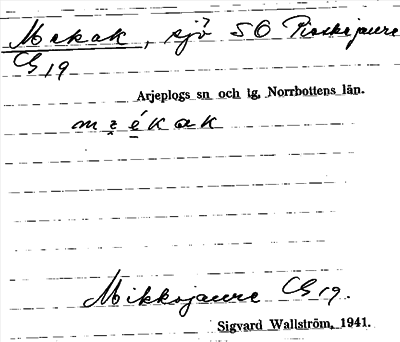 Makak, sjö SO Pieskejaure
C519
Arjeplogs sn och tg, Norrbottens län.
Mikkojaure C519.
Sigvard Wallström, 1941.